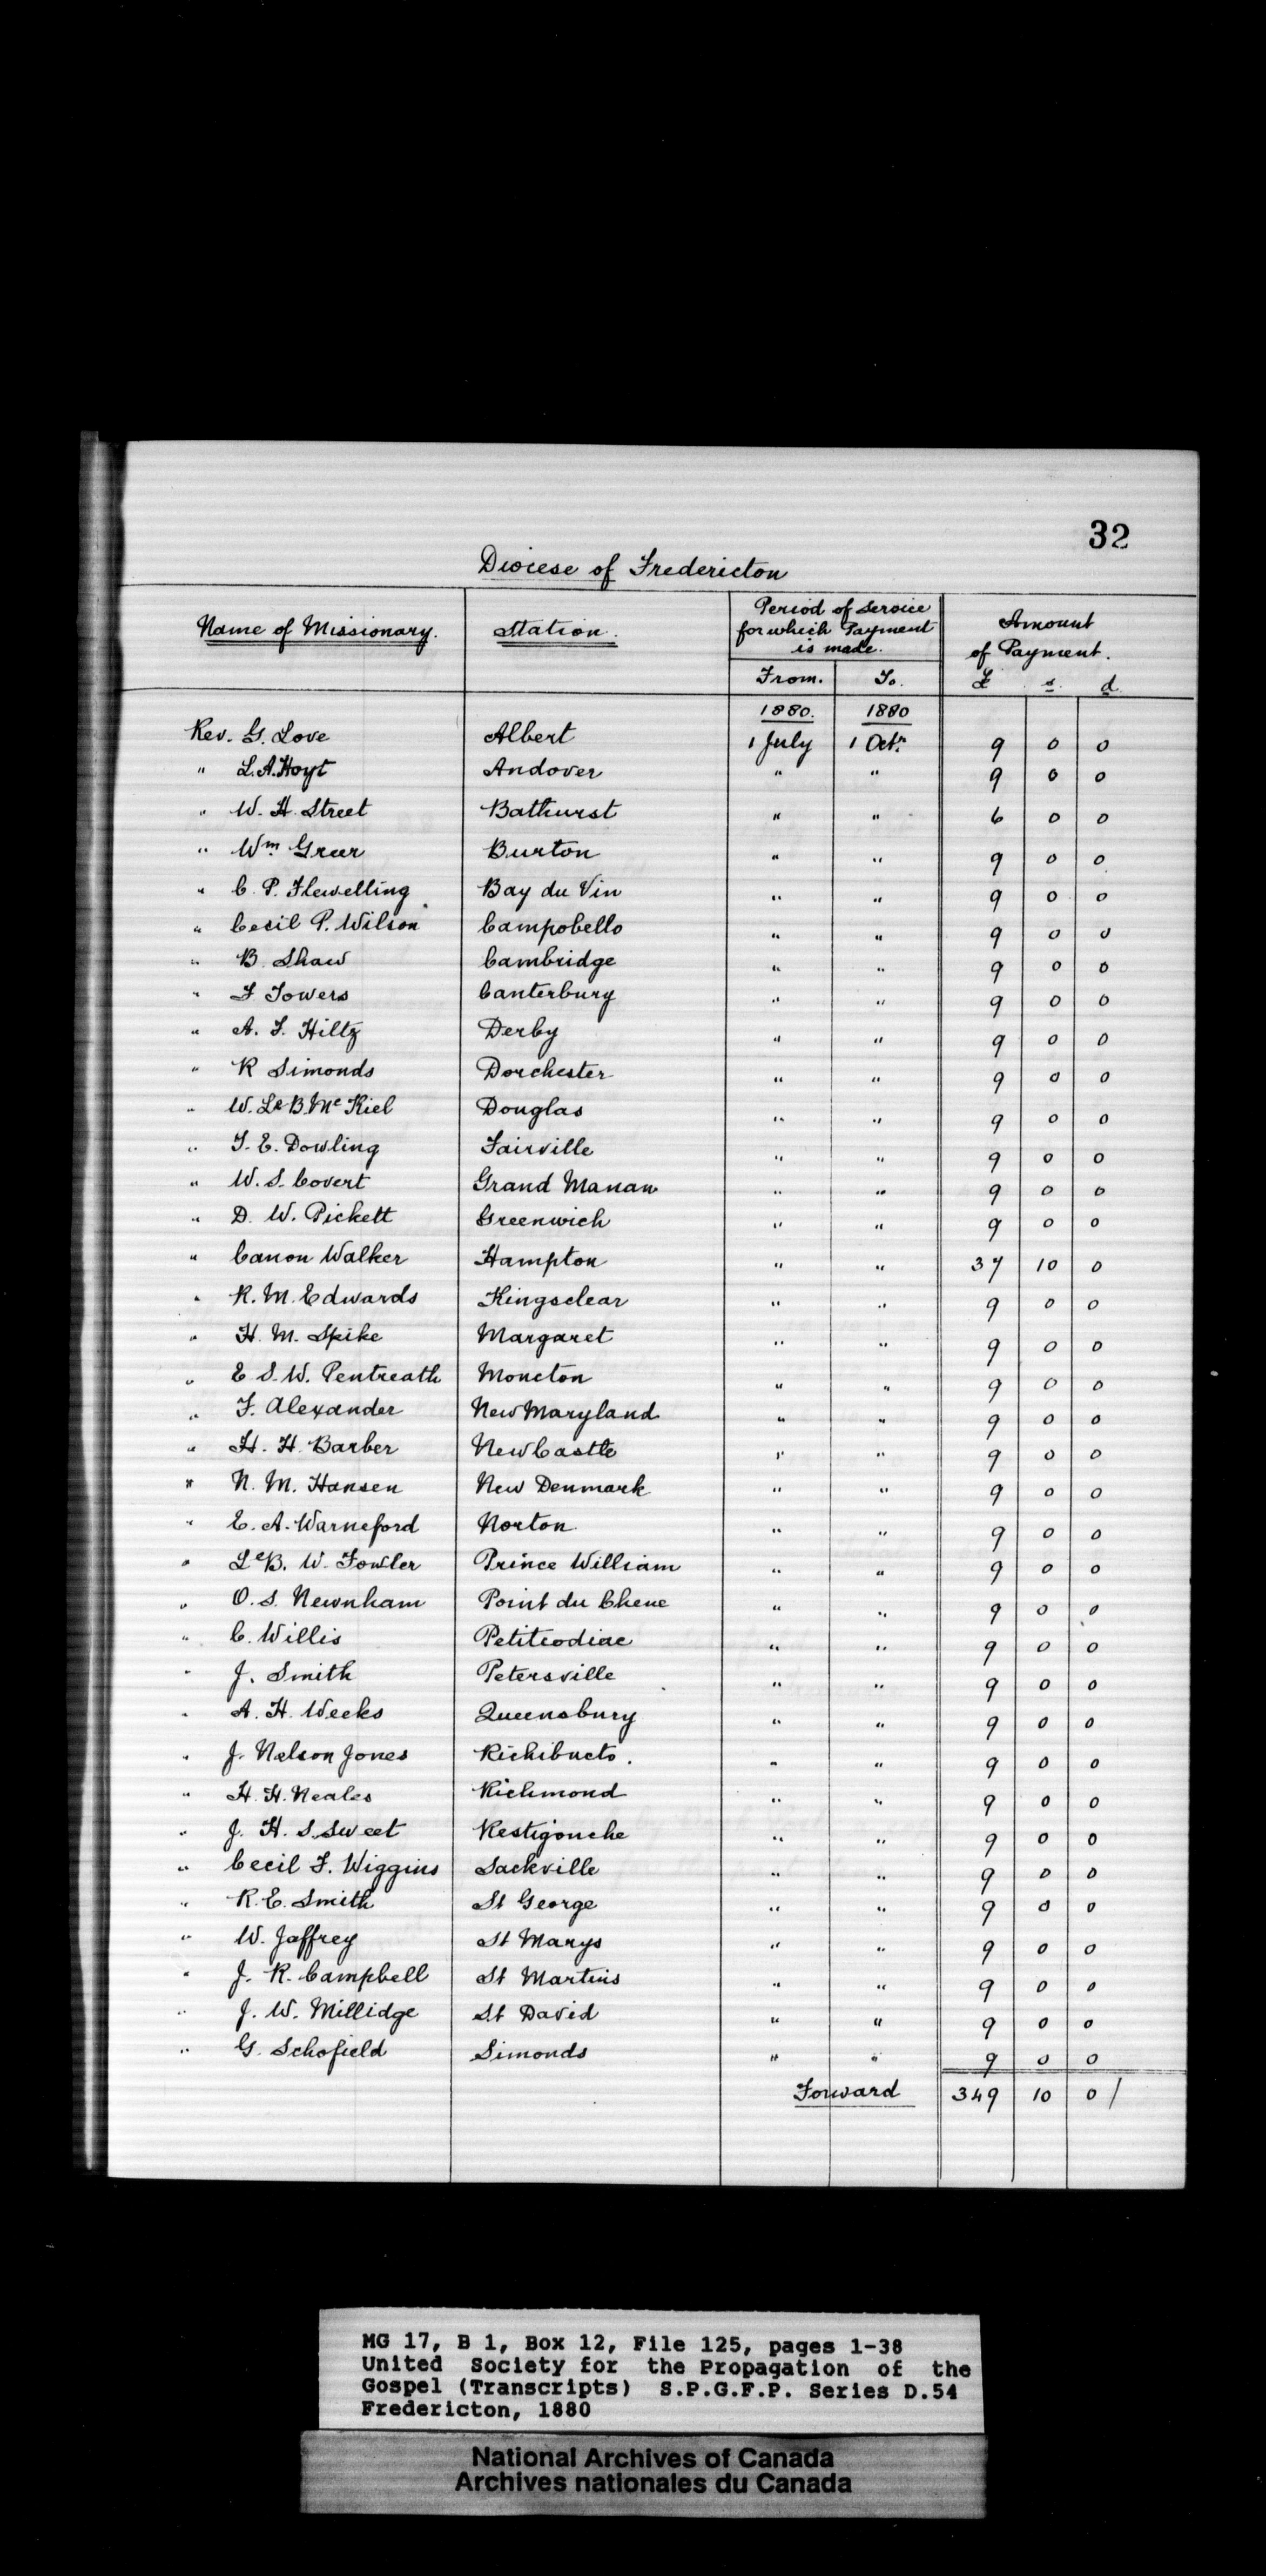 32
Diocese of Fredericton
Name of Missionary. Station. Period of Service for which Payment is made. Amount of Payment.
From. To. £ s. d.
1880. 1880
Rev. G. Love Albert 1 July 1 Octr. 9 0 0
" L. A. Hoyt Andover " " 9 0 0
" W. H. Street Bathurst " " 6 0 0
" Wm. Greer Burton " " 9 0 0
" C. P. Flewelling Bay du Vin " " 9 0 0
" Cecil P. Wilson Campobello " " 9 0 0
" B. Shaw Cambridge " " 9 0 0
" F. Towers Canterbury " " 9 0 0
" A. F. Hiltz Derby " " 9 0 0
" R Simonds Dorchester " " 9 0 0
" W. Le B. Mc Kiel Douglas " " 9 0 0
" T. E. Dowling Fairville " " 9 0 0
" W. S. Covert Grand Manan " " 9 0 0
" D. W. Pickett Greenwich " " 9 0 0
" Canon Walker Hampton " " 37 10 0
" R. M. Edwards Kingsclear " " 9 0 0
" H. M. Spike Margaret " " 9 0 0
" E S. W. Pentreath Moncton " " 9 0 0
" F. Alexander New Maryland " " 9 0 0
" H. H. Barber New Castle " " 9 0 0
" N. M. Hansen New Denmark " " 9 0 0
" E. A. Warneford Norton " " 9 0 0
" Le B. W. Fowler Prince William " " 9 0 0
" O. S. Newnham Point du Chene " " 9 0 0
" C. Willis Petitcodiac " " 9 0 0
" J. Smith Petersville " " 9 0 0
" A. H. Weeks Queensbury " " 9 0 0
" J. Nelson Jones Richibucto. " " 9 0 0
" H. H. Neales Richmond " " 9 0 0
" J. H. S. Sweet Restigouche " " 9 0 0
" Cecil F. Wiggins Sackville " " 9 0 0
" R. E. Smith St George " " 9 0 0
" W. Jaffrey St Marys " " 9 0 0
" J. R. Campbell St Martins " " 9 0 0
" J. W. Millidge St David " " 9 0 0
" G. Schofield Simonds " " 9 0 0
Forward 349 10 0 /
MG 17, B 1, Box 12, File 125, pages 1-38
United Society for the Propagation of the
Gospel (Transcripts) S.P.G.F.P. Series D.54
Fredericton, 1880
National Archives of Canada
Archives nationales du Canada